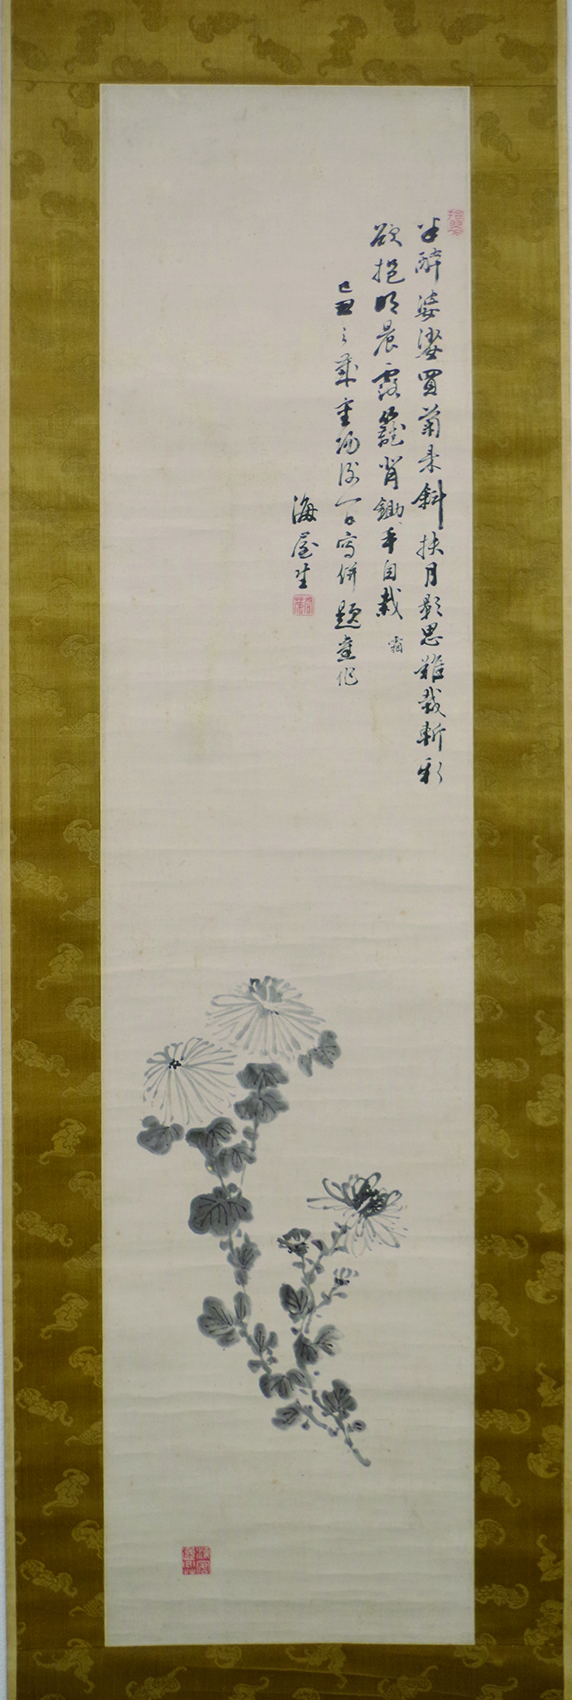 半醉婆娑買菊来斜扶月影思難裁斬新
欲挹明晨露籠背鋤手自栽 霜
己丑之歳重陽後一日写併題旧作
海屋生